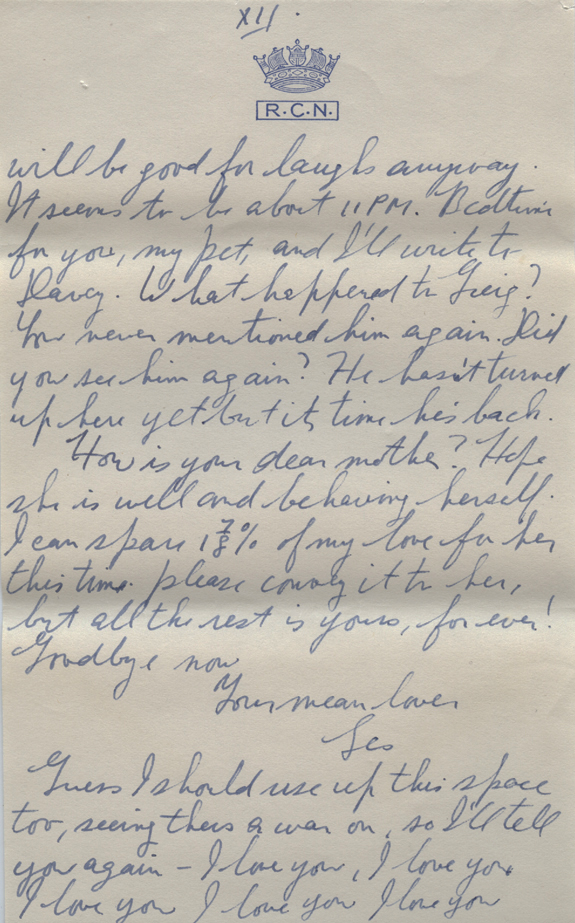 XII.
R.C.N.
will be good for laughs anyway.
It seems to be about 11 PM. Bedtime
for you, my pet, and I'll write to
Davey. What happened to Greig?
You never mentioned him again. Did
you see him again? He hasn't turned
up here yet but its time he's back.
How is your dear mother? Hope
she is well and behaving herself.
I can spare 1 7/8% of my love for her
this time. please convey it to her,
but all the rest is yours, for ever!
Goodbye now
Your mean lover
Les
Guess I should use up this space
too, seeing theres a war on, so I'll tell
you again - I love you, I love you
I love you I love you I love you